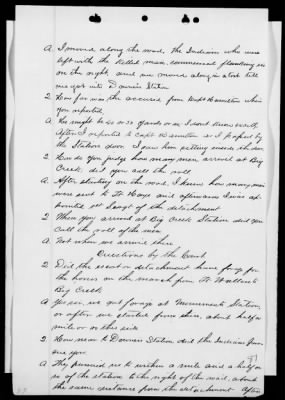 A. I moved along the road, the Indians who were
left with the killed man, commenced flanking us
on the right, and we moved along in a trot till
we got into Downer Station
Q. How far was the accused from Capt Hamilton when
you reported
A. He might be 20 or 30 yards or so I dont know exactly,
after I reported to Capt Hamilton as I passed by
the Station door I saw him sitting inside the door
Q. How do you judge how many men arrived at Big
Creek, did you call the roll
A. After starting on the road, I knew how many men
were sent to Ft Hays and afterwards I was ap-
pointed 1st Sergt of the detachment
Q. When you arrived at Big Creek Station did you
call the roll of the men
A. Not when we arrived there
Questions by the Court
Q. Did the escort or detachment have forage for
the horses on the march from Ft Wallace to
Big Creek
A. Yes sir we got forage at Monuments Station,
or after we started from there about half a
mile or on this side
Q. How near to Downers Station did the Indians pursue
you
A. They pursued us to within a mile and a half or
so of the station to the right of the road, about
the same distance from the detachment After